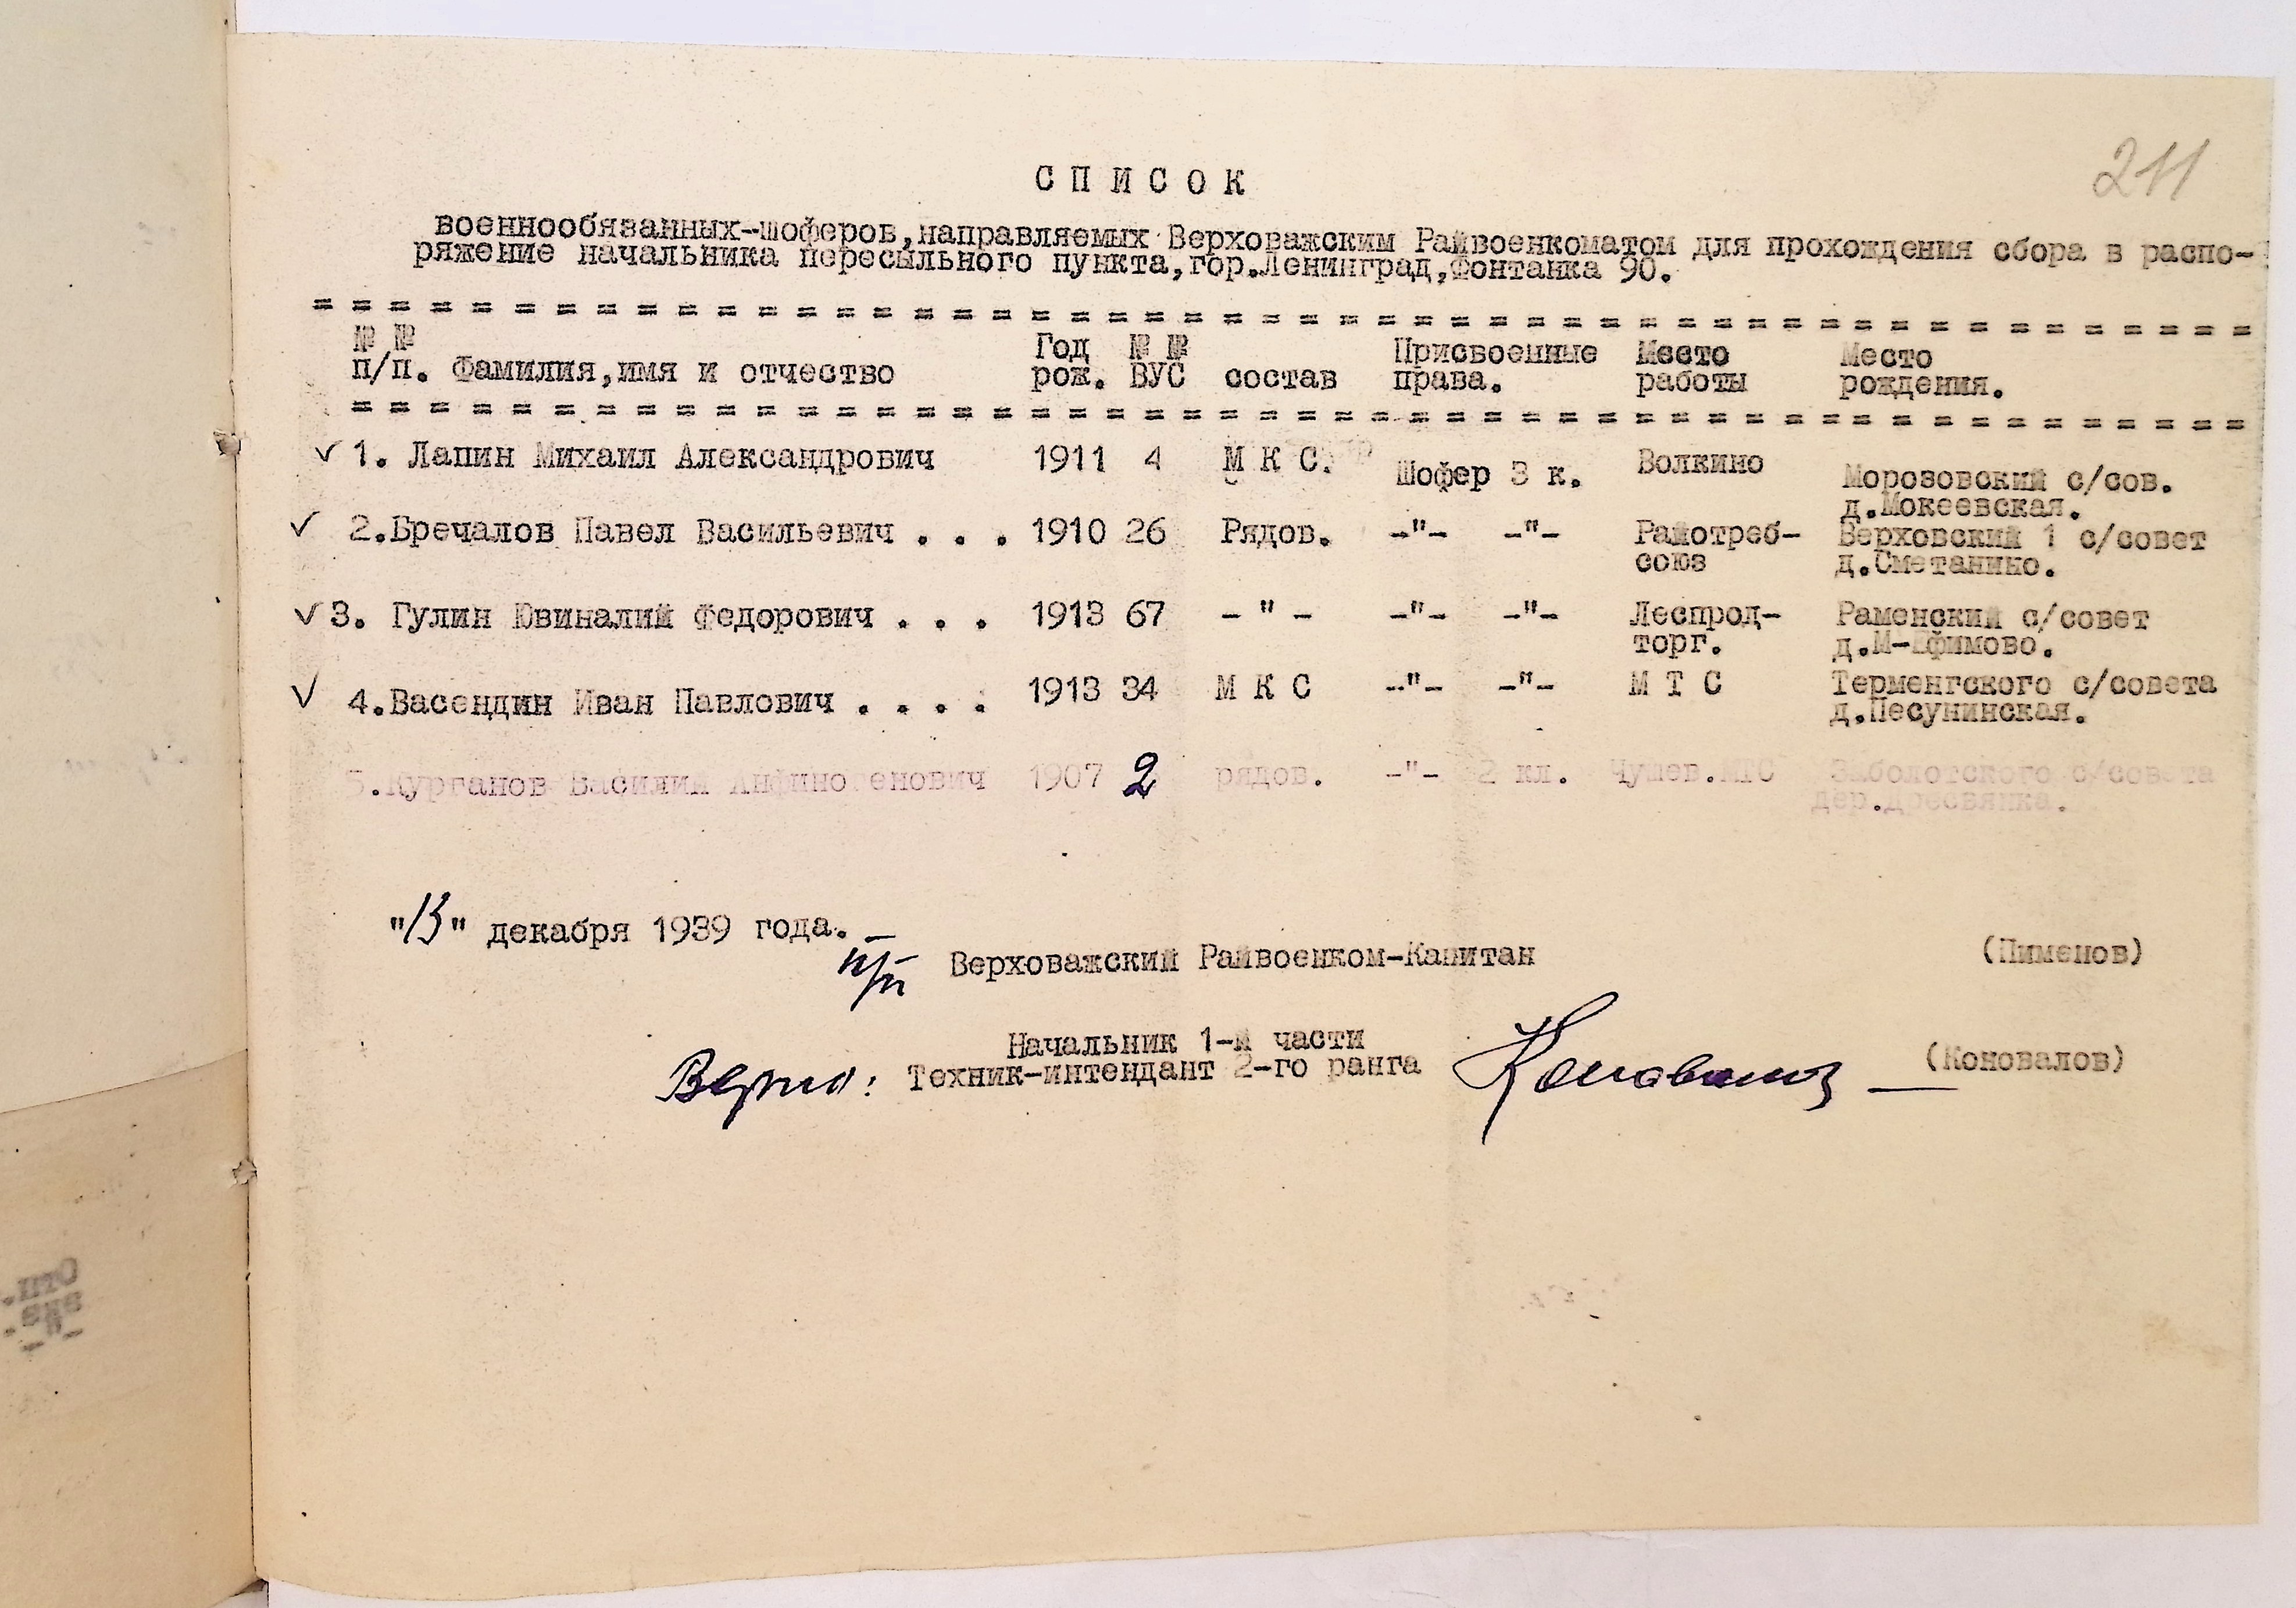 211
С П И С О К
военнообязанных-шоферов,направляемых Верховажским Райвоенкоматом для прохождения сбора в распо-
ряжение начальника пересыльного пункта,гор.Ленинград,Фонтанка 90.
= = = = = = = = = = = = = = = = = = = = = = = = = = = = = = = = = = = = = = = = = = = = = = = = =
№ № Год № № Присвоенные Место Место
п/п. Фамилия,имя и отчество рож. ВУС состав права. работы рождения.
= = = = = = = = = = = = = = = = = = = = = = = = = = = = = = = = = = = = = = = = = = = = = = = =
✓ 1. Лапин Михаил Александрович 1911 4 М К С. Шофер 3 к. Волкино Морозовский с/сов.
д.Мокеевская.
✓ 2.Бречалов Павел Васильевич . . . 1910 26 Рядов. -"- -"- Райотреб- Верховский 1 с/совет
союз д.Сметанино.
✓ 3. Гулин Ювиналий Федорович . . . 1913 67 - " - -"- -"- Леспрод- Раменский с/совет
торг. д.М-Ефимово.
✓ 4.Васендин Иван Павлович . . . . 1913 34 М К С -"- -"- М Т С Терменгского с/совета
д.Песунинская.
5.Курганов Василий Анфиногенович 1907 2 рядов. -"- 2 кл. Чушев.МТС Заболотского с/совета
дер.Дресвянка.
"13" декабря 1939 года.
п/п Верховажский Райвоенком-Капитан (Пименов)
Начальник 1-й части
Верно: Техник-интендант 2-го ранга Коновалов (Коновалов)